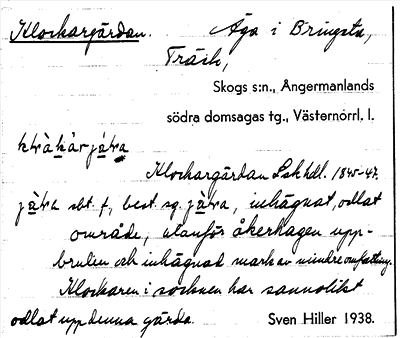 Klockargärdan. Äga i Bringsta,
Träsk,
Skogs s:n., Ångermanlands
södra domsagas tg., Västernorrl. l.
Klockargärdan Lskhdl. 1845-47.
sbt. f., best. sg. inhägnat, odlat
område, utanför åkerhagen upp-
bruten och inhägnad mark av mindre omfattning.
Klockaren i socknen har sannolikt
odlat upp denna gärda.
Sven Hiller 1938.